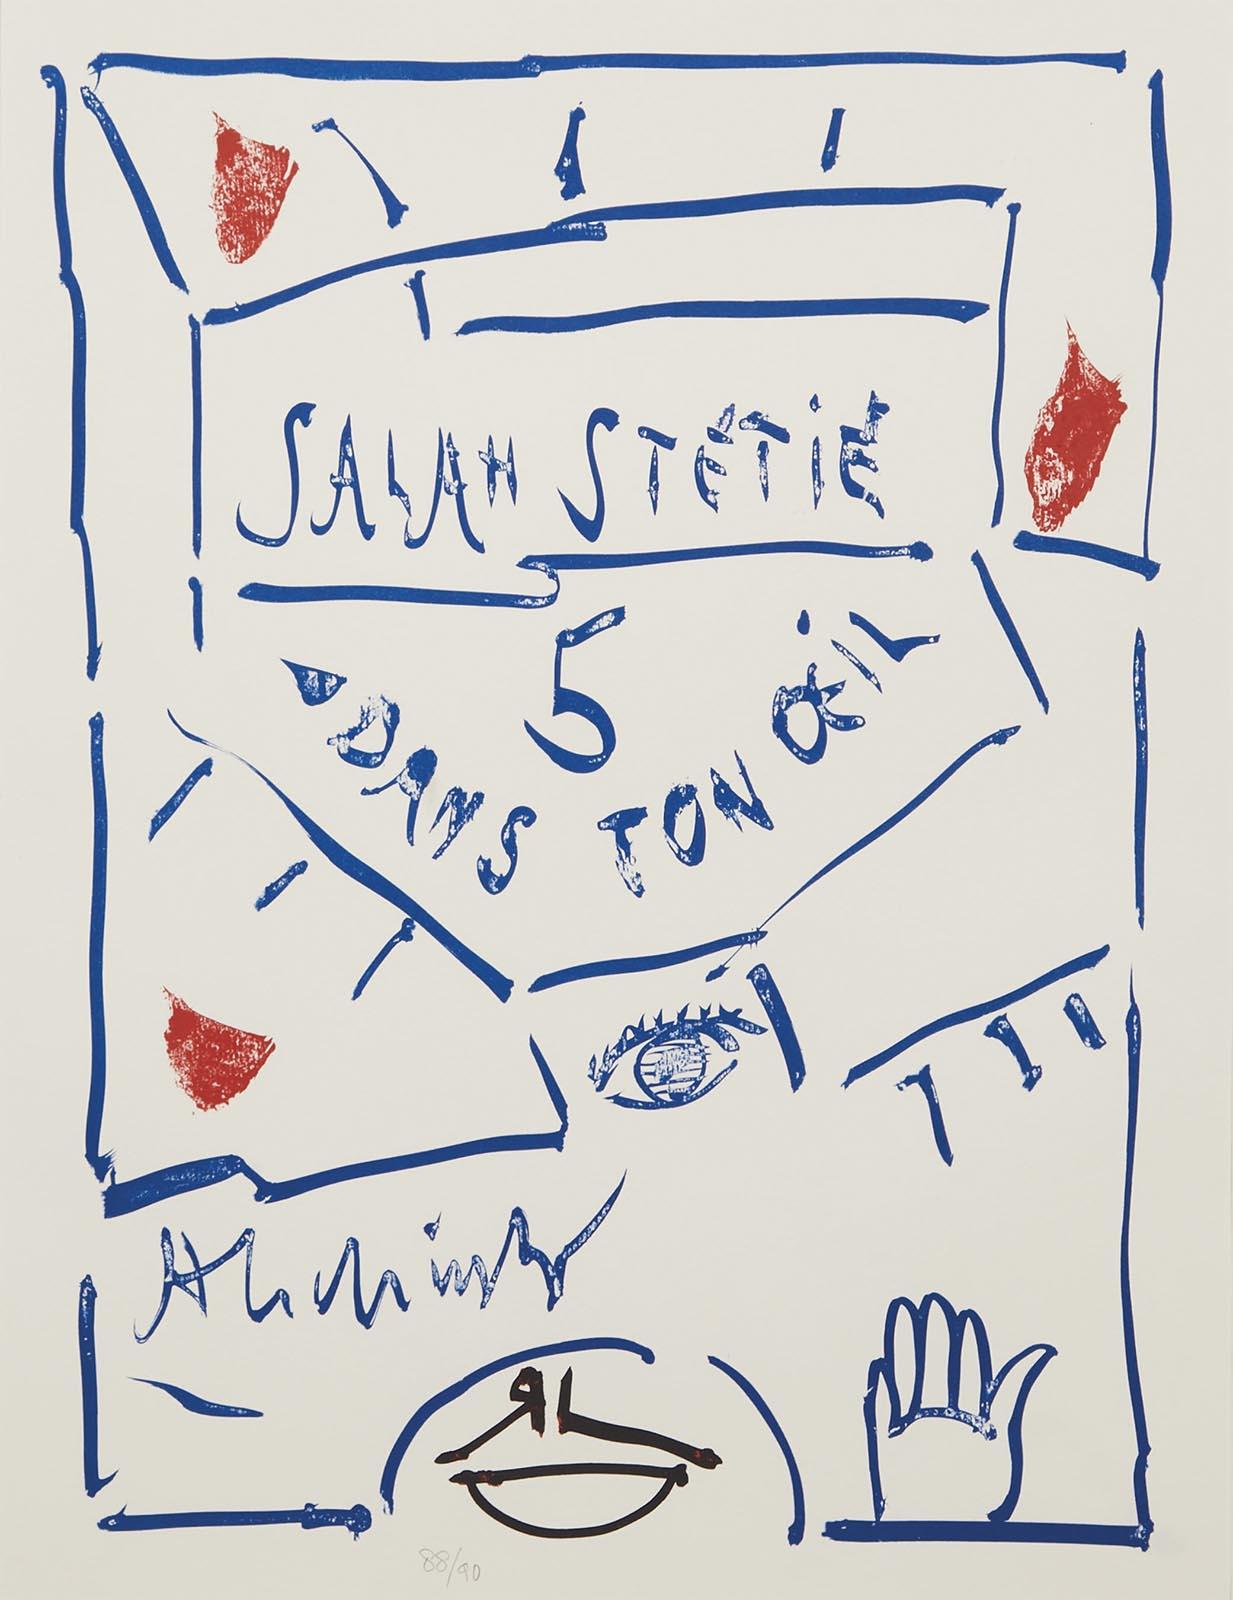 SALAH STÉTIÉ
5
DANS TON ŒIL
Alechinsky
RL
88/90